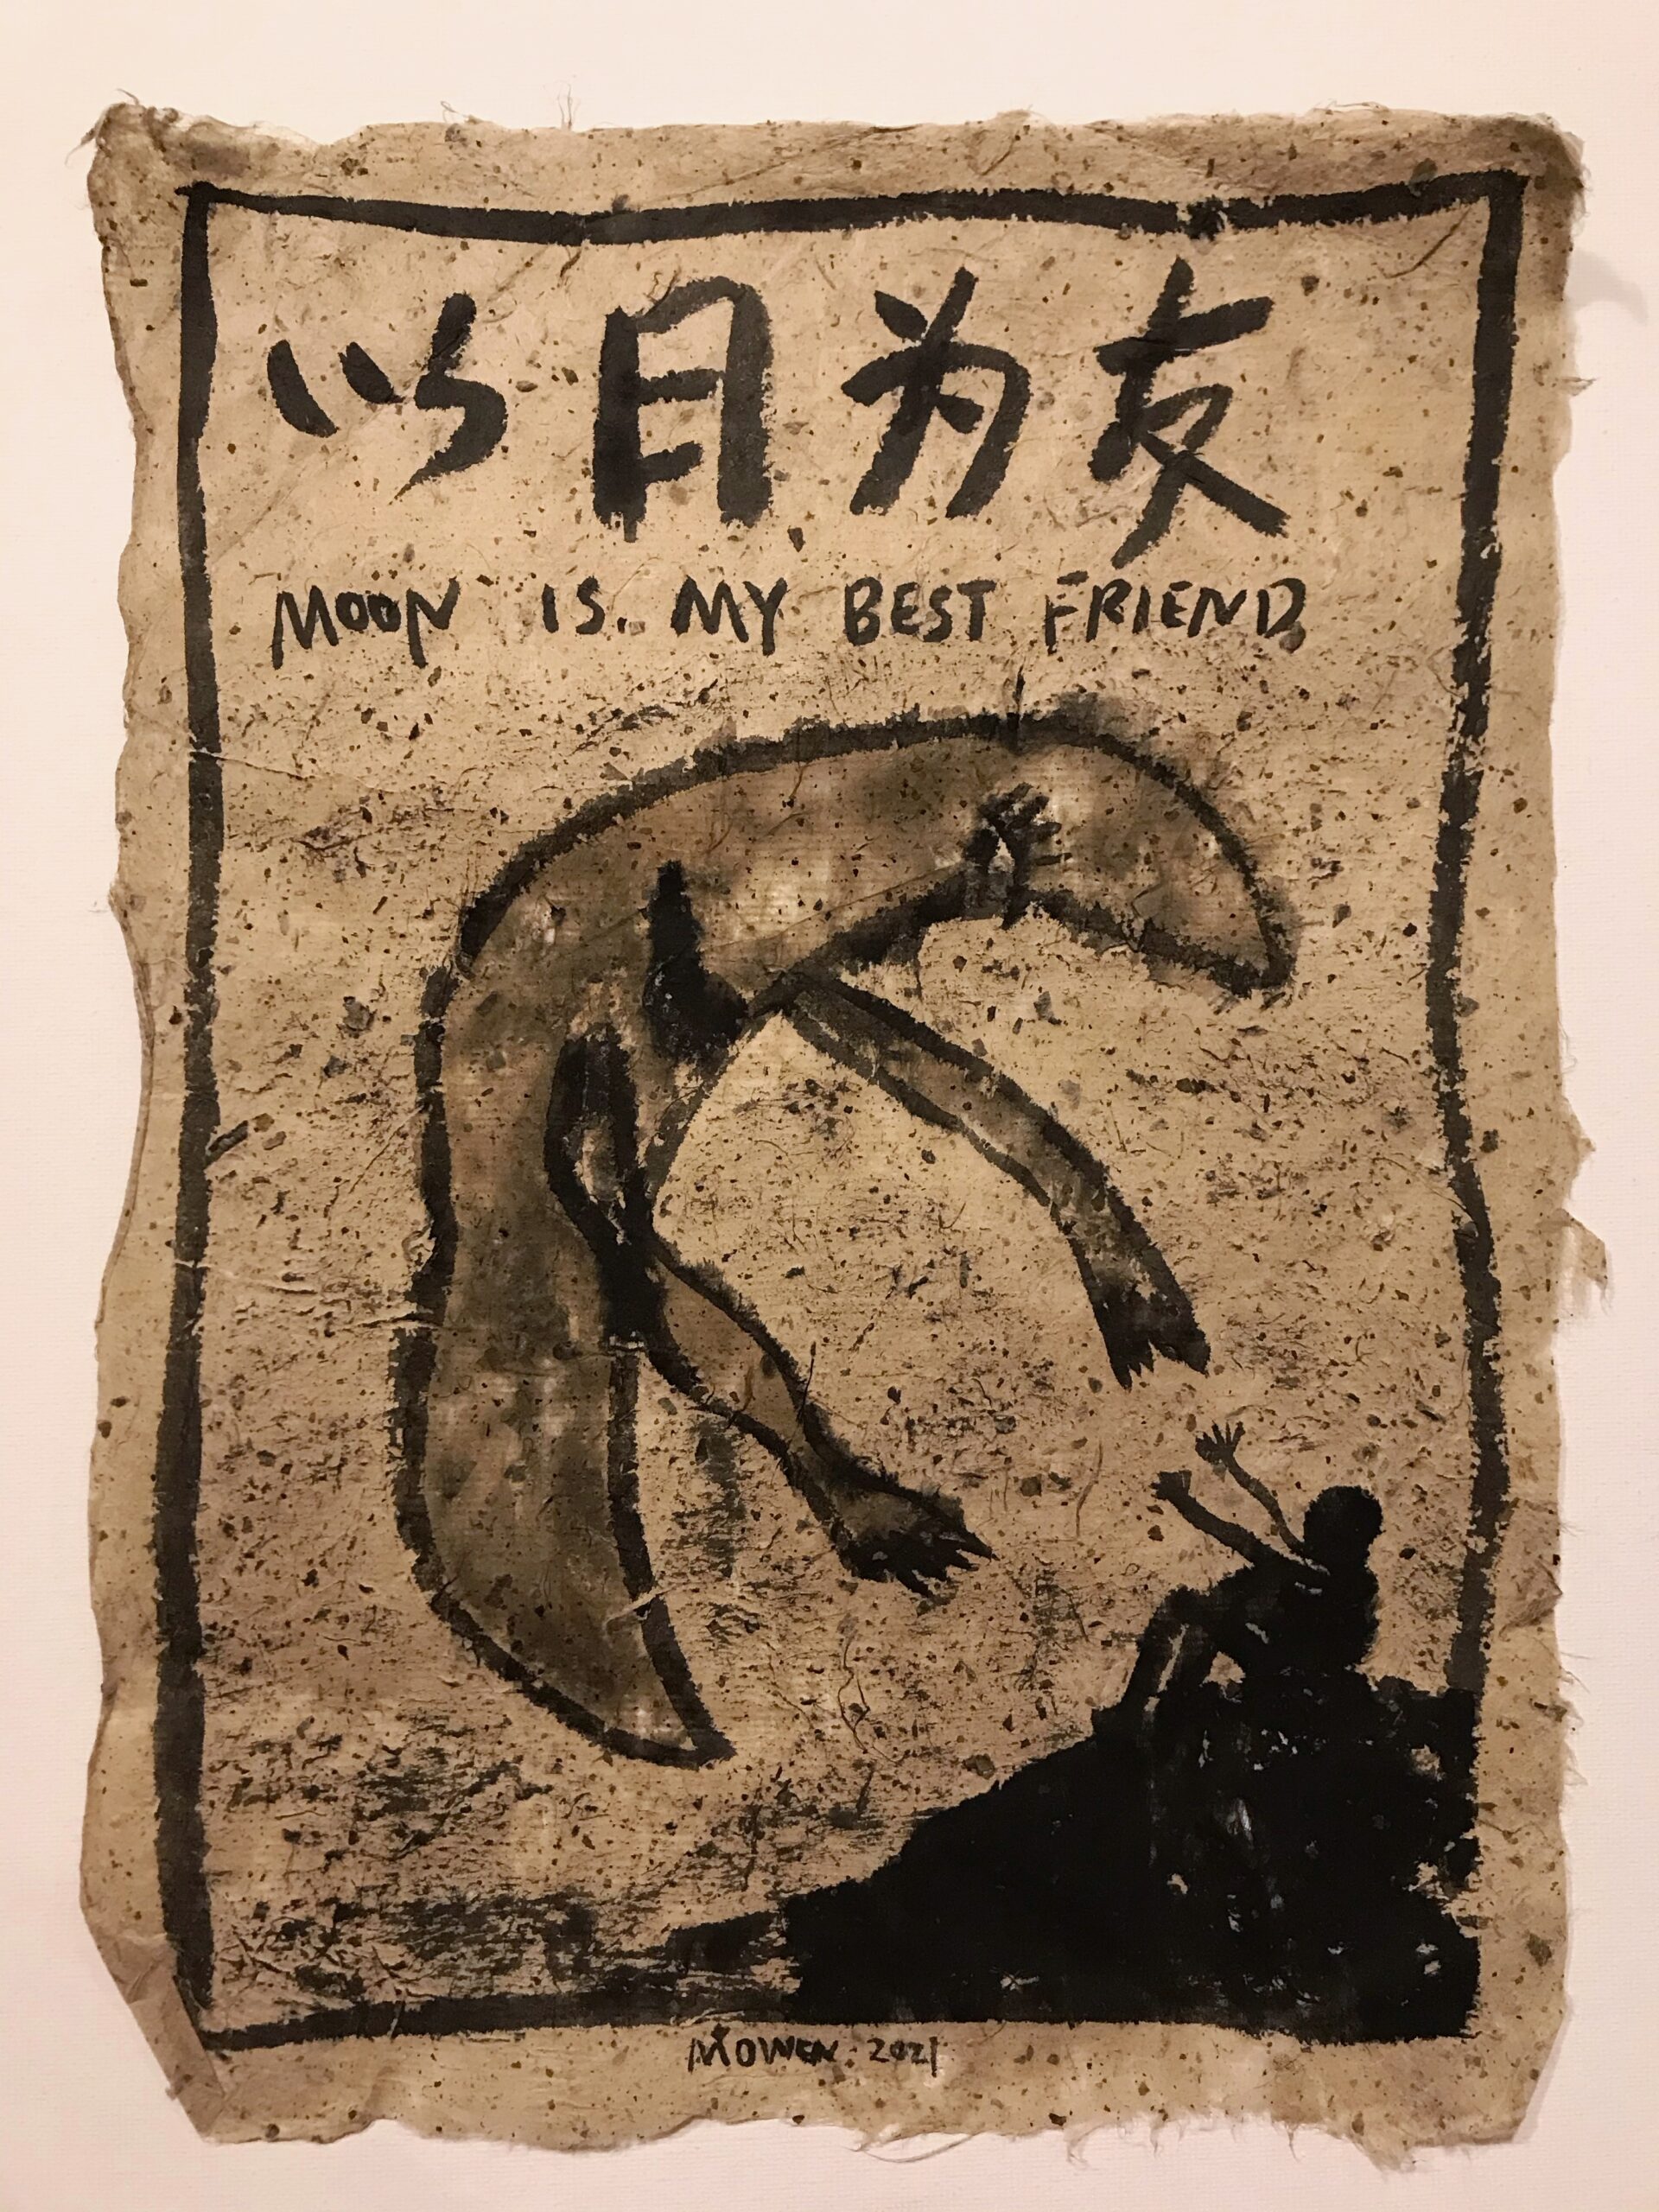 以月为友
MOON IS. MY BEST FRIEND
MOWEN. 2021